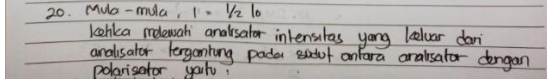 20. Mula-mula, I = 1/2 Io
Ketika melewati analisator intensitas yang keluar dari
analisator tergantung pada sudut antara analisator dengan
polarisator yaitu :